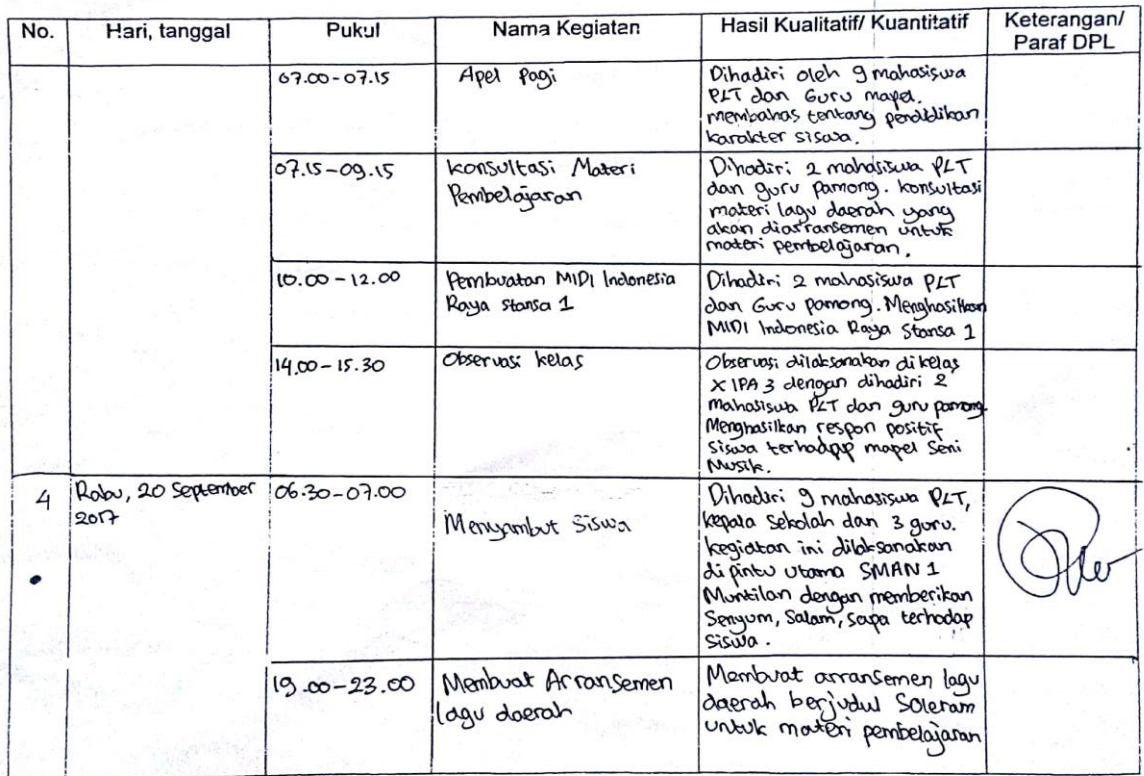 No. Hari, tanggal Pukul Nama Kegiatan Hasil Kualitatif/ Kuantitatif Keterangan/
Paraf DPL
07.00-07.15 Apel Pagi Dihadiri oleh 9 mahasiswa
PLT dan Guru mapel.
membahas tentang pendidikan
karakter siswa.
07.15-09.15 konsultasi Materi
Pembelajaran
Dihadiri 2 mahasiswa PLT
dan guru pamong. konsultasi
materi lagu daerah yang
akan diarransemen untuk
materi pembelajaran.
10.00-12.00 Pembuatan MIDI Indonesia
Raya stansa 1
Dihadiri 2 mahasiswa PLT
dan Guru pamong. Menghasilkan
MIDI Indonesia Raya Stansa 1
14.00-15.30 Observasi kelas Observasi dilaksanakan dikelas
X IPA 3 dengan dihadiri 2
mahasiswa PLT dan guru pamong
Menghasilkan respon positif
siswa terhadap mapel Seni
Musik.
4 Rabu, 20 September
2017
06.30-07.00 Menyambut Siswa
Dihadiri 9 mahasiswa PLT,
kepala sekolah dan 3 guru.
kegiatan ini dilaksanakan
di pintu utama SMAN 1
Muntilan dengan memberikan
Senyum, Salam, sapa terhadap
siswa.
19.00-23.00 Membuat Arransemen
lagu daerah
Membuat arransemen lagu
daerah berjudul Soleram
untuk materi pembelajaran